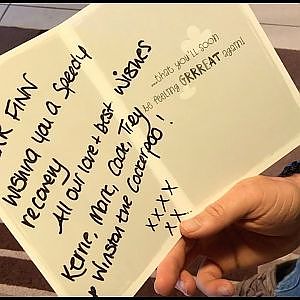 AR FINN
Wishing you a Speedy
recovery
All our love + best Wishes
Kerrie, Marc, Cade, Trey
Winston the Cockerpoo!
XXXX
XX
...that you'll soon
be feeling GRRREAT again!